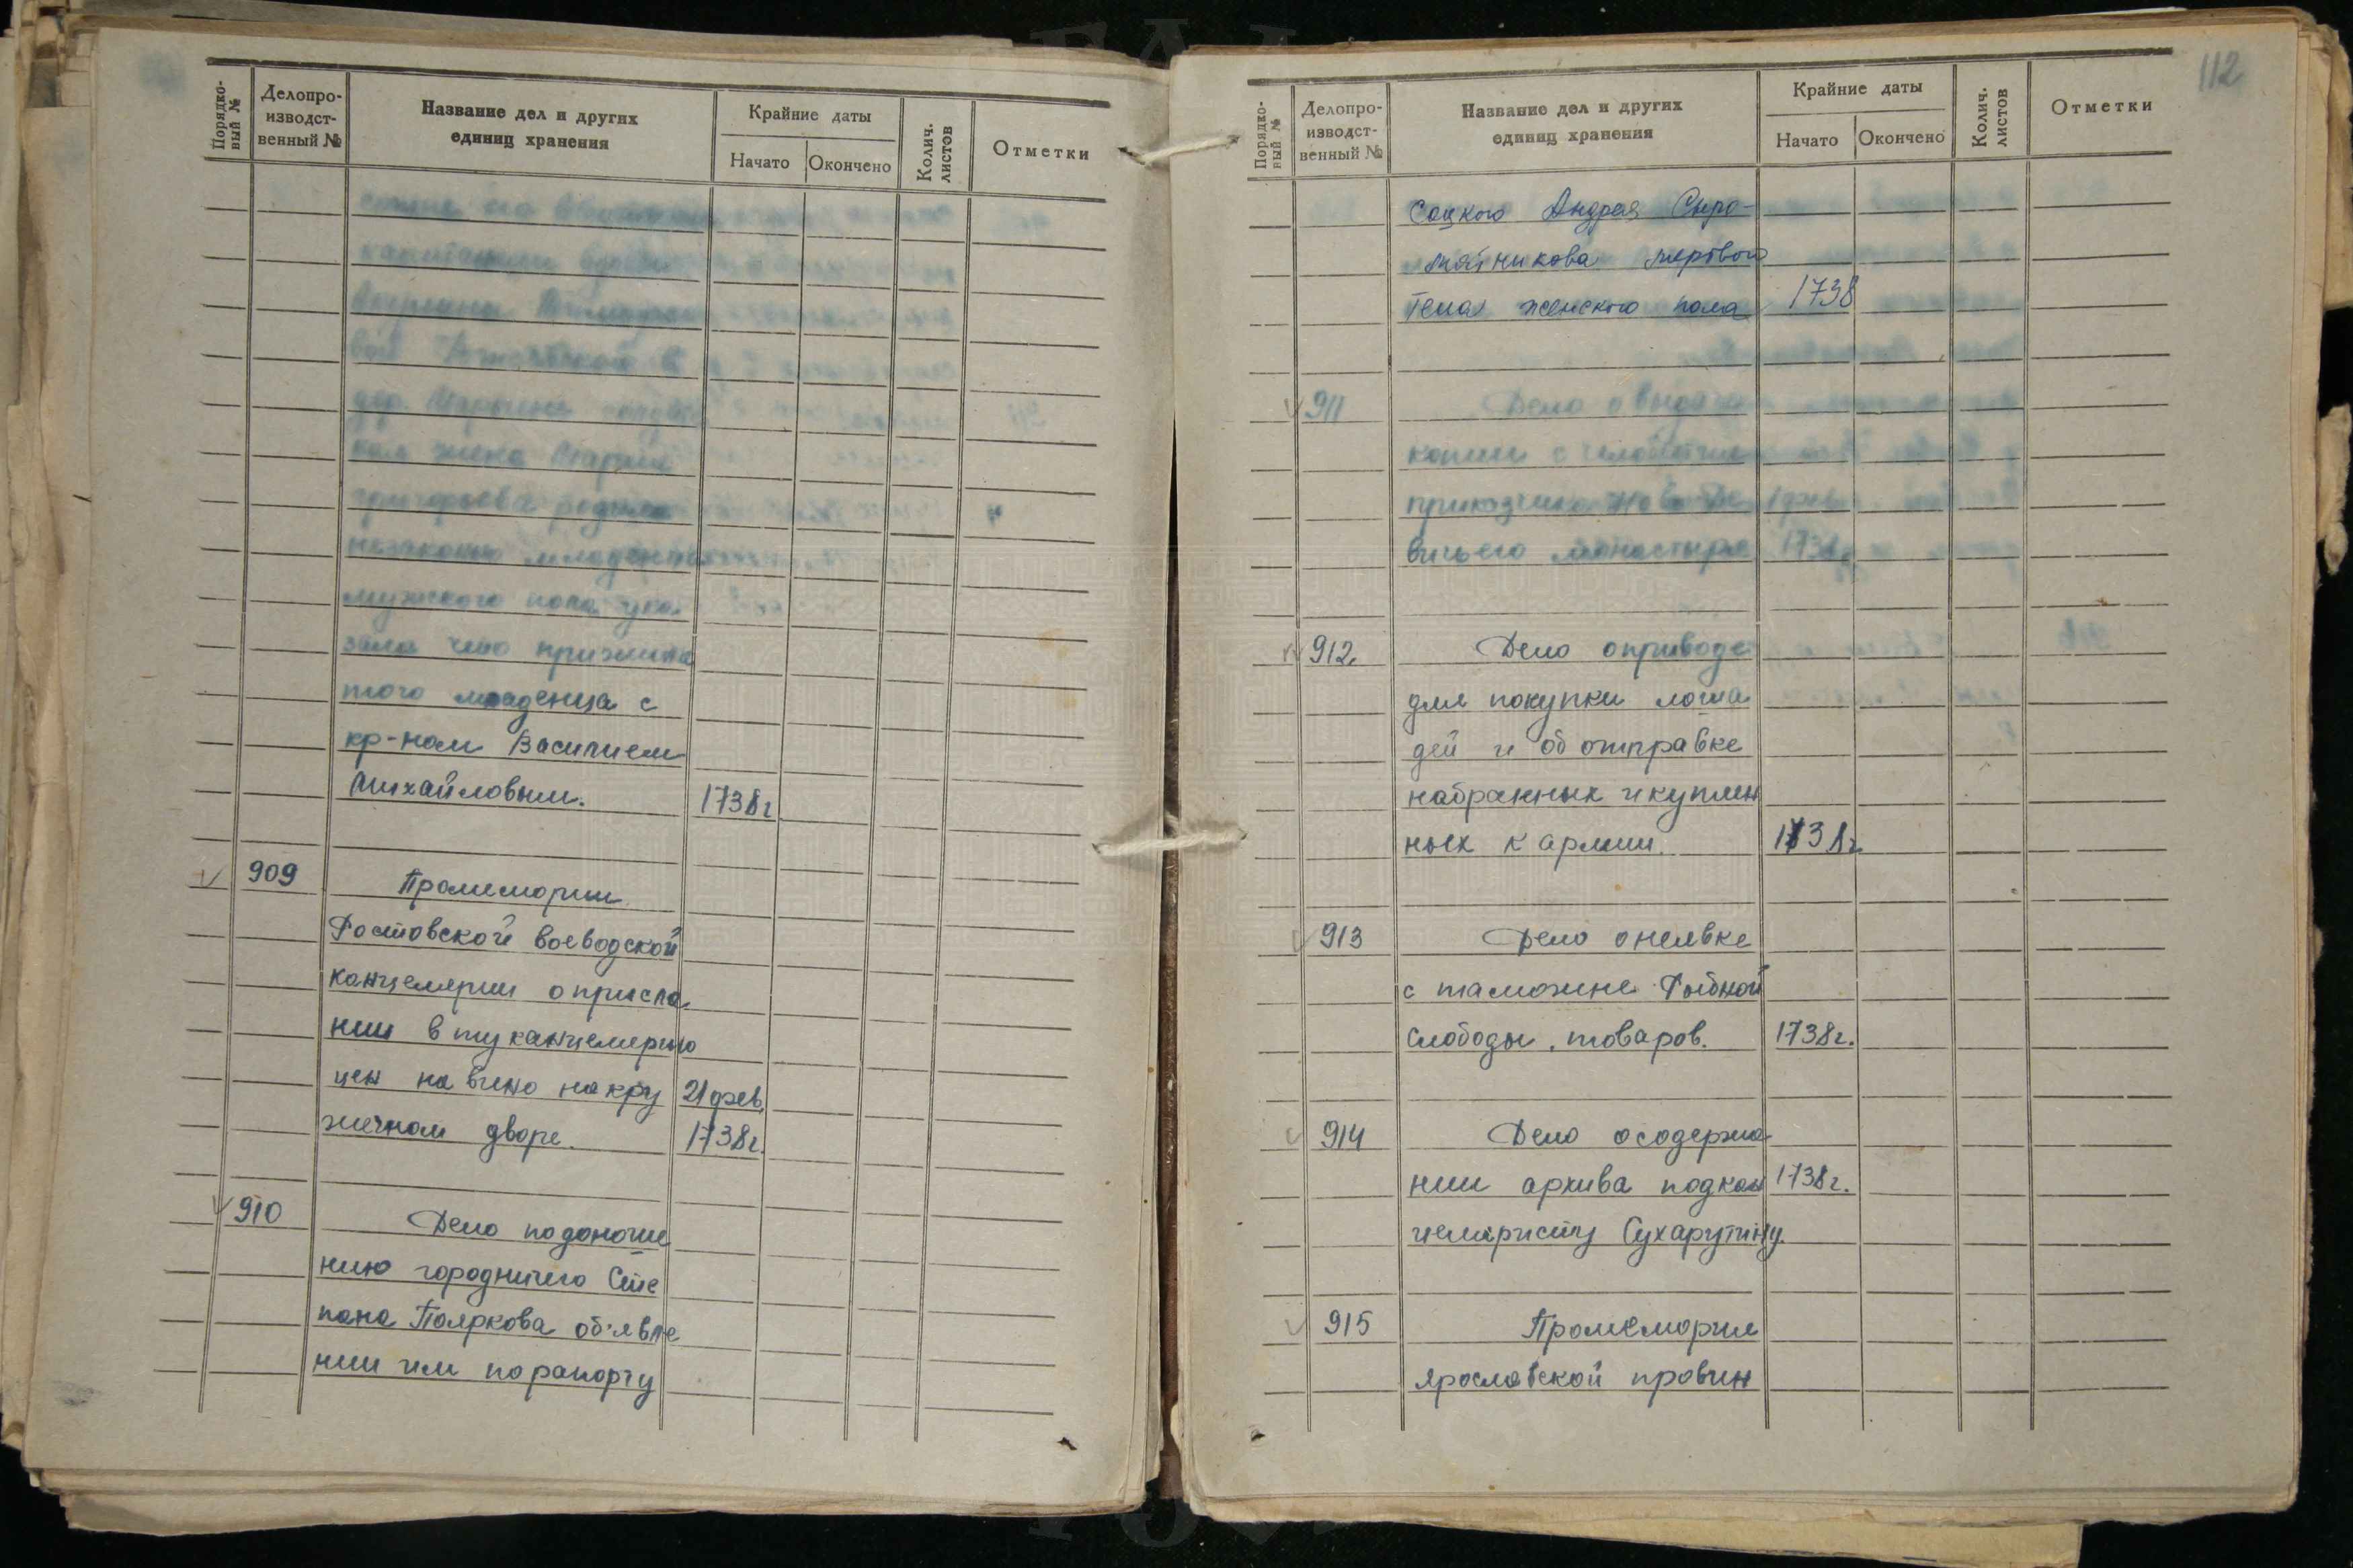 Порядко-
вый №
Делопро-
изводст-
венный №
Название дел и других
единиц хранения
Крайние даты
Начато
Окончено
Колич.
листов
Отметки
вой
дер.
кая жена Мария
Григорьева родила
незаконно младенца
мужского пола ука
зала что прижила
того младенца с
кр-ном Василием
Михайловым. 1738г
909 Промемории
Ростовской воеводской
канцелярии о присла
нии в ту канцелярию
цен на вино на кру 21 фев.
жечном дворе. 1738г.
910 Дело по доноше
нию городничего Сте
пана Пояркова об'явле
нии им по рапорту
112
Порядко-
вый №
Делопро-
изводст-
венный №
Название дел и других
единиц хранения
Крайние даты
Начато
Окончено
Колич.
листов
Отметки
Соцкого Андрея Сыро-
мятникова мертвого
тела женского пола 1738
911 Дело о выдачи
копии с челобитни
приказчика Ново Де
вичьего монастыря 1738г
912. Дело о приводе
для покупки лоша
дей и об отправке
набранных и куплен
ных к армии. 1738г.
913 Дело о неявке
с таможне Рыбной
слободы товаров. 1738г.
914 Дело о содержа
нии архива подкан 1738г.
целяристу Сухарутину.
915 Промемория
Ярославской провин